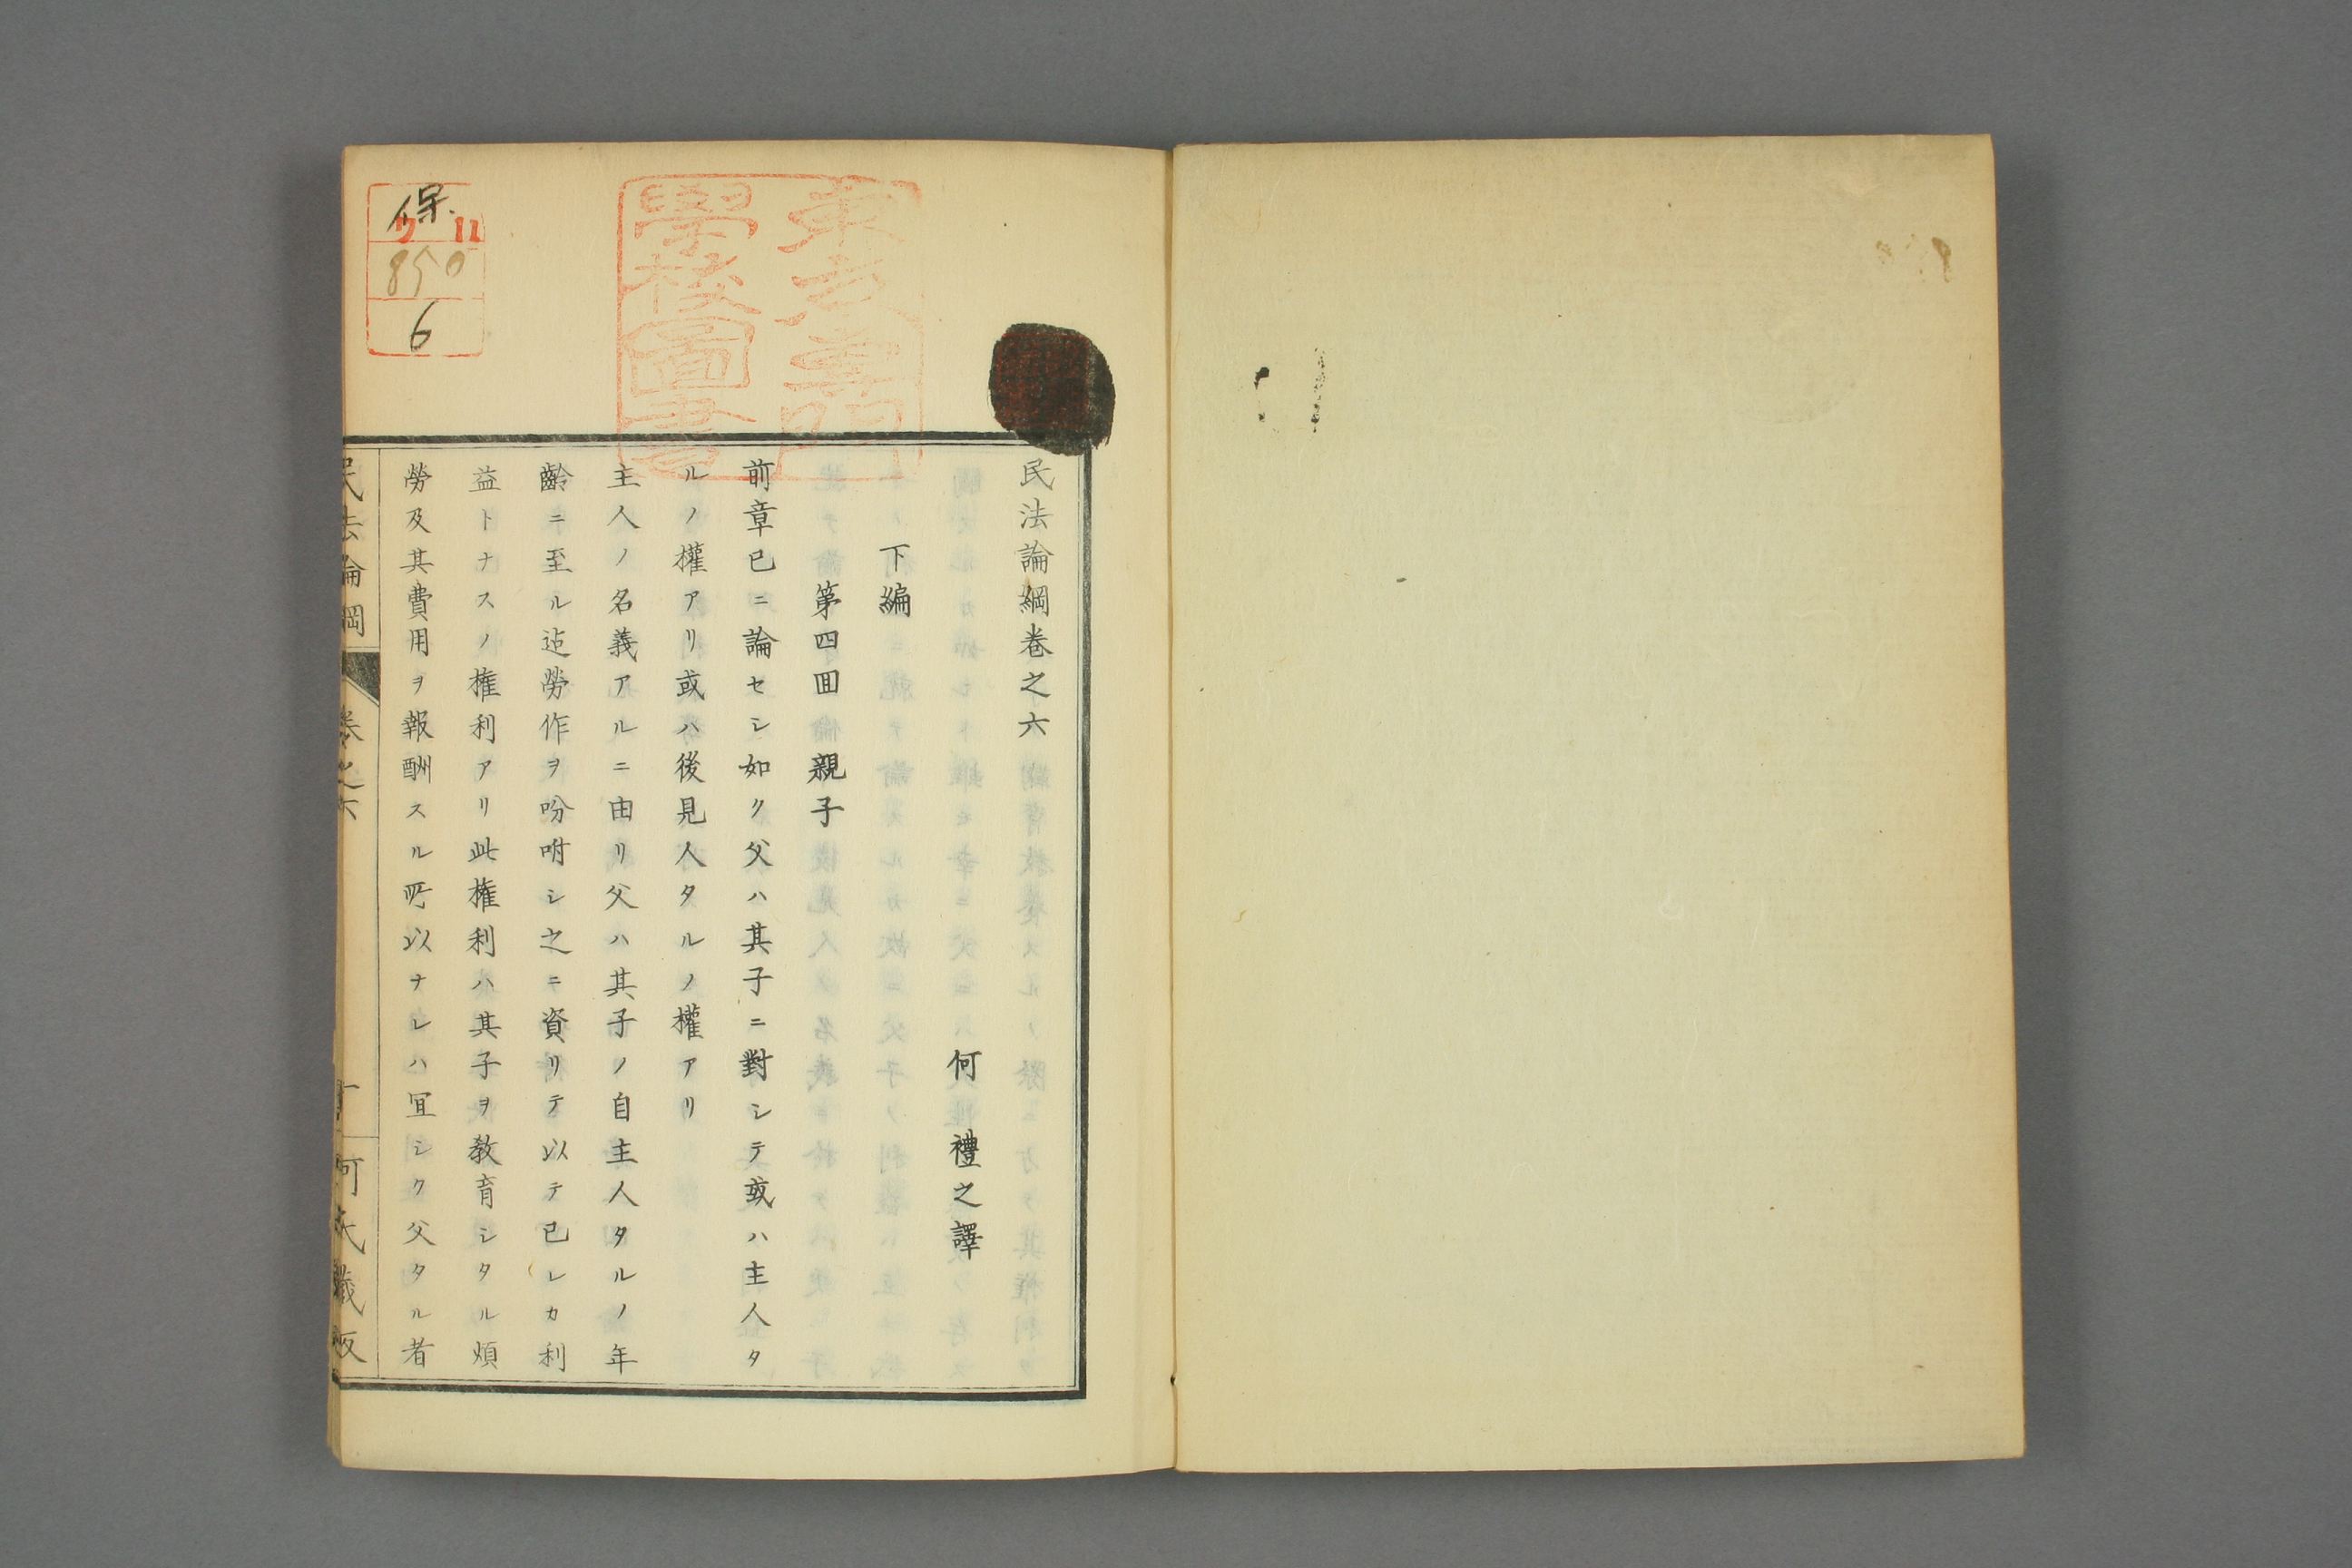 民法論綱卷之六
何禮之譯
下編
第四囬 親子
前章已ニ論セシ如ク父ハ其子ニ對シテ或ハ主人タ
ルノ權アリ或ハ後見人タルノ權アリ
主人ノ名義アルニ由リ父ハ其子ノ自主人タルノ年
齡ニ至ル迠勞作ヲ吩咐シ之ニ資リテ以テ已レカ利
益トナスノ権利アリ此権利ハ其子ヲ教育シタル煩
勞及其費用ヲ報酬スル所以ナレハ宜シク父タル者
民法論綱 卷之六
何氏藏板
學校圖書
保
ワ 11
850
6